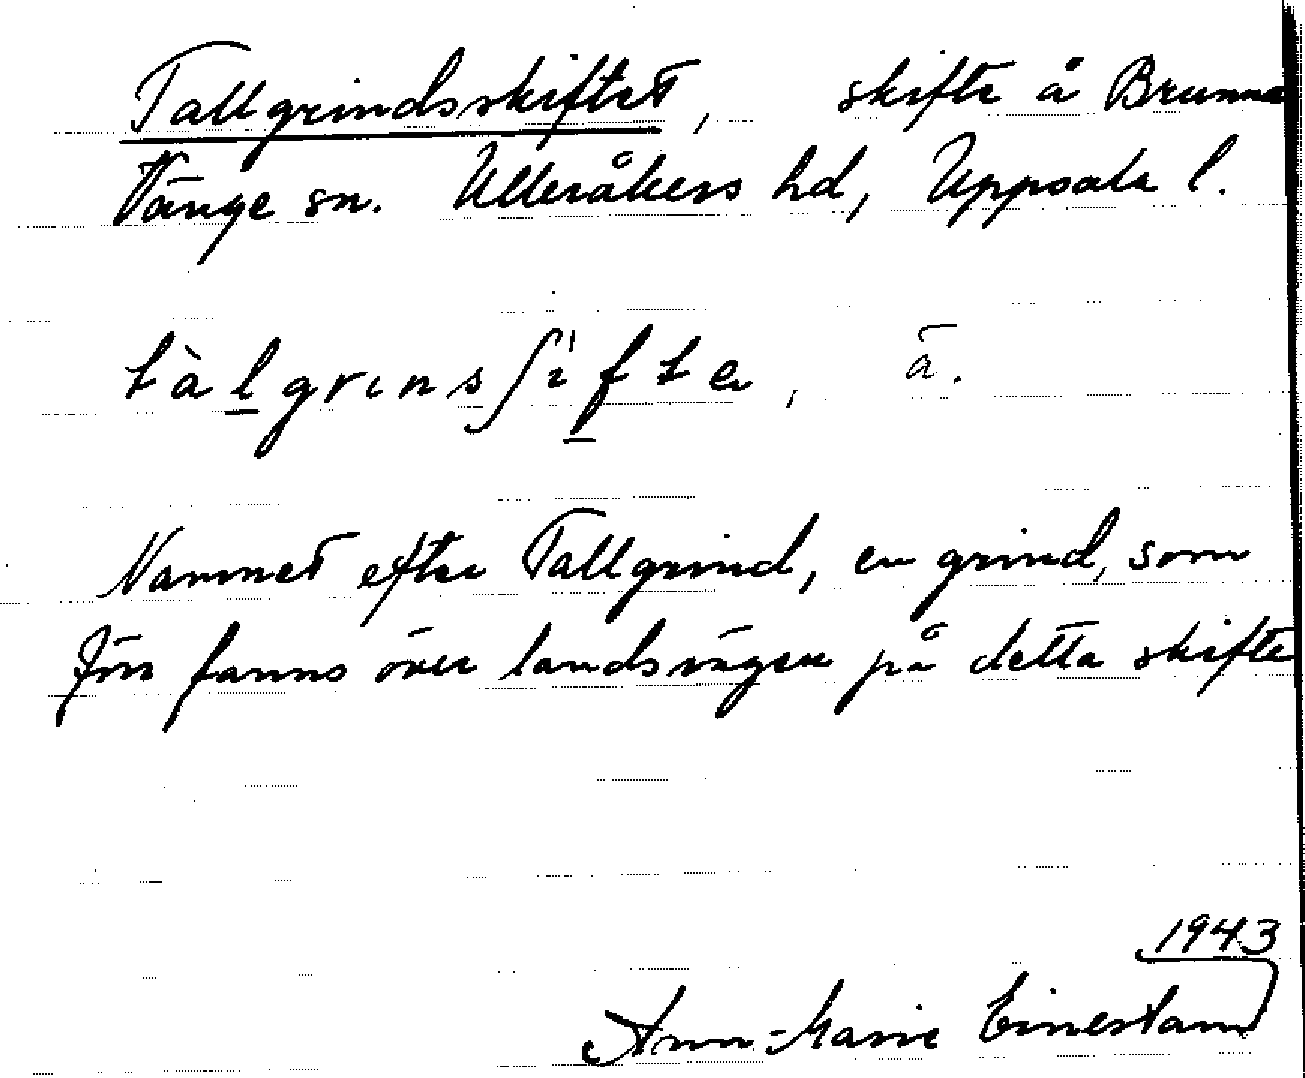 Tallgrindsskiftet, skifte å Brunna
Vänge sn. Ulleråkers hd, Uppsala l.
tàlgrɩnsʃìfte, ā.
Namnet efter Tallgrind, en grind, som
förr fanns över landsvägen på detta skifte
1943
Ann-Marie